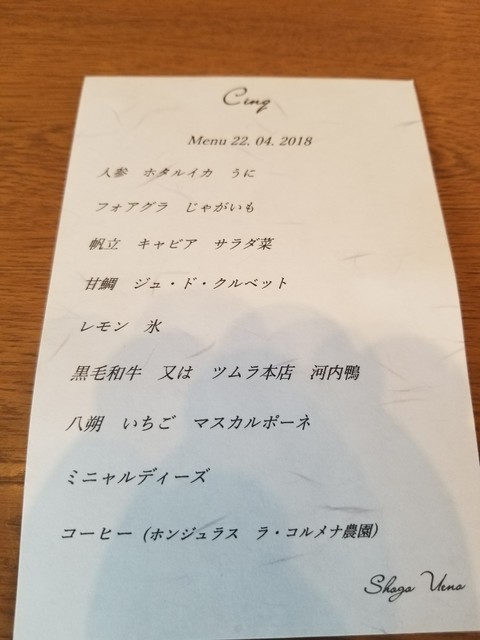 Cinq
Menu 22. 04. 2018
人参　ホタルイカ　うに
フォアグラ　じゃがいも
帆立　キャビア　サラダ菜
甘鯛　ジュ・ド・クルベット
レモン　氷
黒毛和牛　又は　ツムラ本店　河内鴨
八朔　いちご　マスカルポーネ
ミニャルディーズ
コーヒー（ホンジュラス　ラ・コルメナ農園）
Shogo Ueno